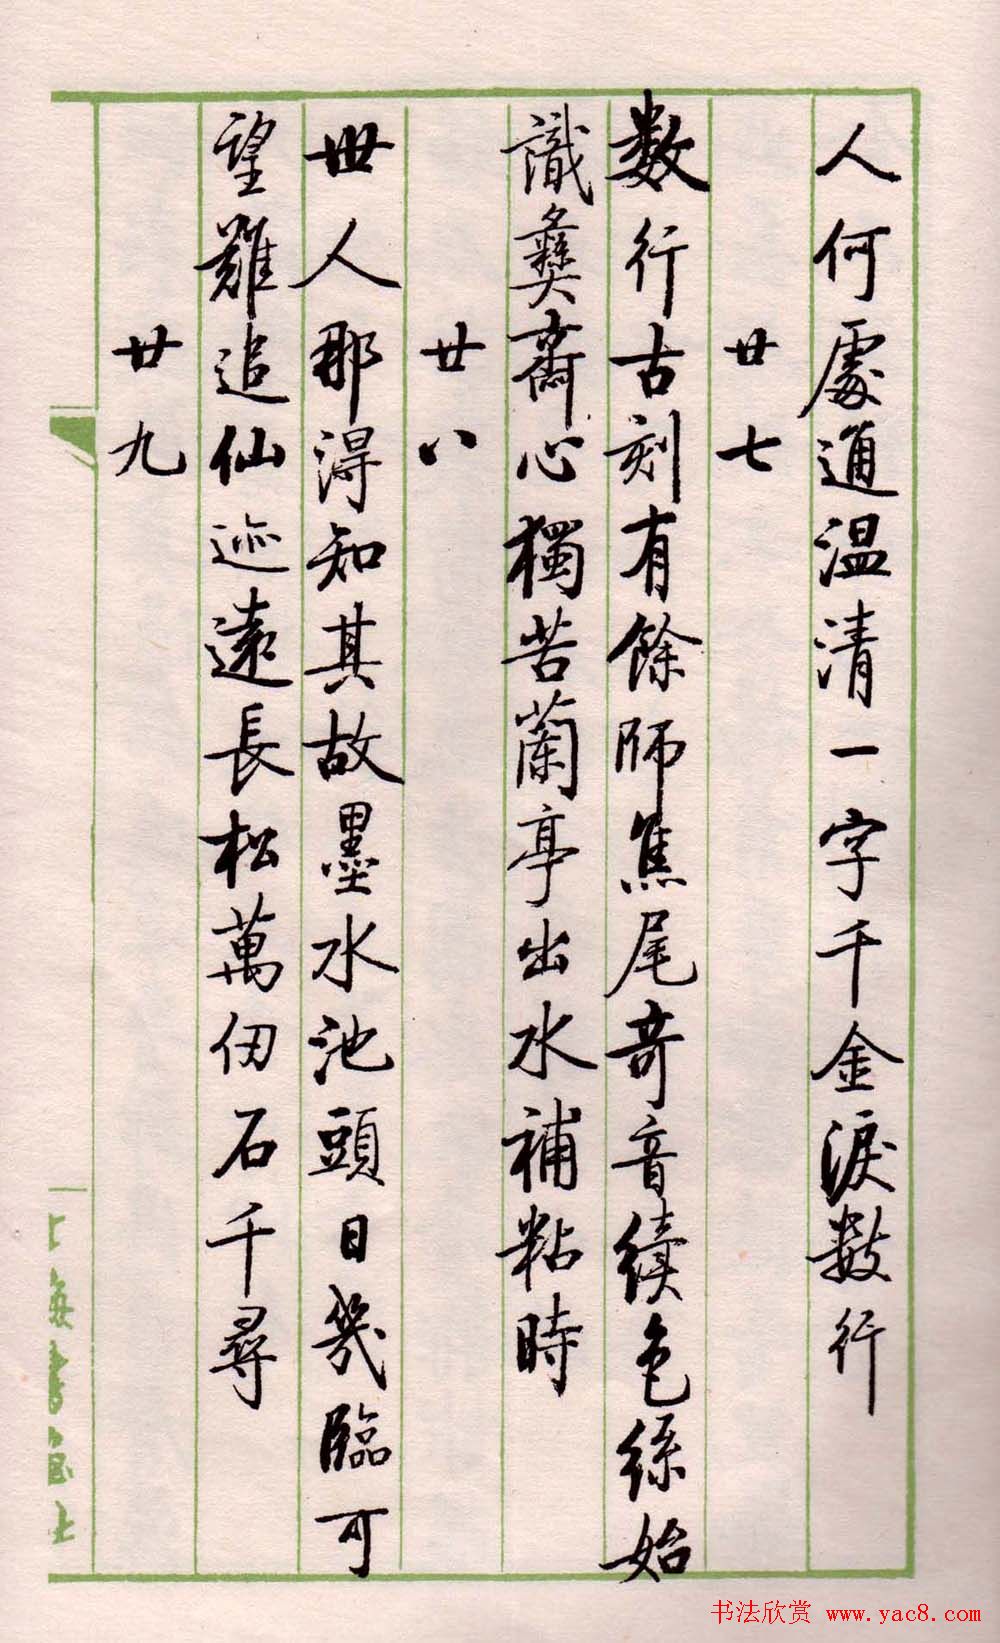 人何處通温清一字千金淚數行
廿七
数行古刻有餘師焦尾奇音續色絲始
識彝齋心獨苦蘭亭出水補粘時
廿八
世人那得知其故墨水池頭日幾臨可
望難追仙迹遠長松萬仞石千尋
廿九
上海書店
书法欣赏 www.yac8.com